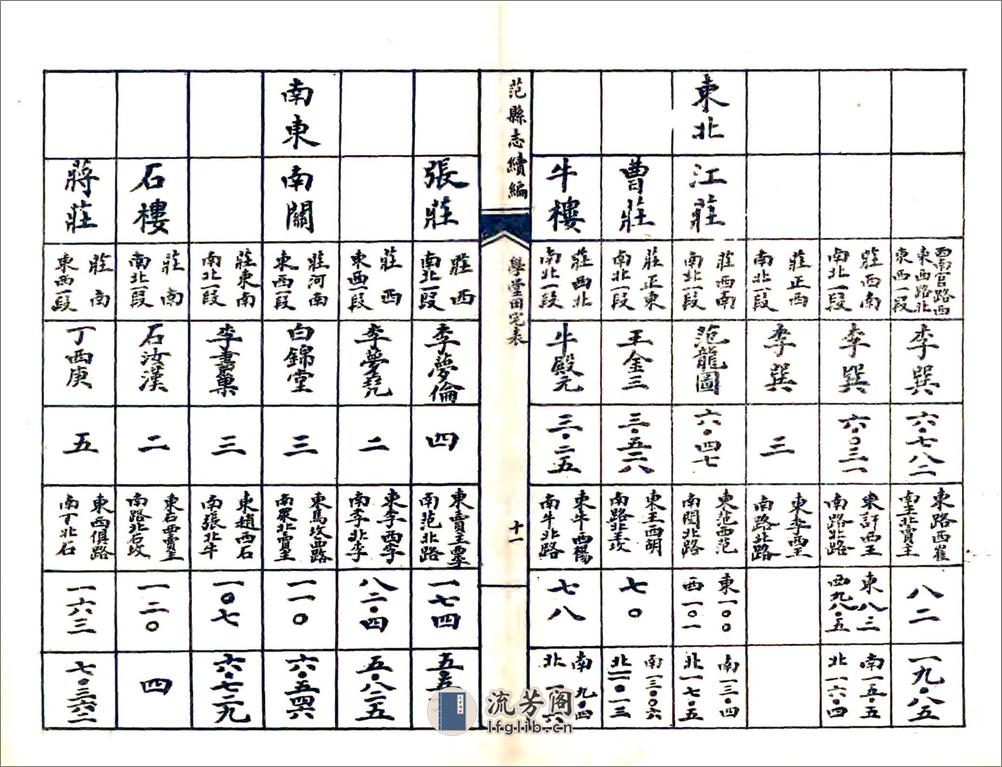 東北
西南官路西
東西路北
東西一段
李巽
六·七八二
東路西崔
南王北賣主
八二
一九·八五
莊西南
南北一段
李巽
六·〇三一
東許西王
南路北路
東八三
西九八·五
南一五·五
北一六·四
莊正西
南北一段
李巽
三
東李西王
南路北路
江莊
莊西南
南北一段
范龍圖
六·四七
東范西范
南閻北路
東一〇〇
西一〇一
南一三·四
北一七·五
曹莊
莊正東
南北一段
王金三
三·五二八
東王西胡
南路北王坟
七〇
南一三·〇六
牛樓
莊西北
南北一段
牛殿元
三·二五
東牛西楊
南牛北路
七八
南九·四
范縣志續編
學堂田宅表
十一
張莊
莊西
南北一段
李夢倫
四
東賣主西李
南范北路
一七四
莊西
東西一段
李夢堯
二
東李西李
南李北李
八二·四
五·八二五
南東
南關
莊河南
東西一段
白錦堂
三
東馬坟西路
南眾北賣主
一一〇
六·五四六
莊東南
南北一段
李書菓
三
東趙西石
南張北牛
一〇七
六·七三九
石樓
莊南
南北一段
石汝漢
二
東石西賣主
南路北石坟
一二〇
四
蔣莊
莊南
東西一段
丁西庚
五
東西俱路
南丁北石
一六三
七·三六二
流芳阁
lfglib.cn